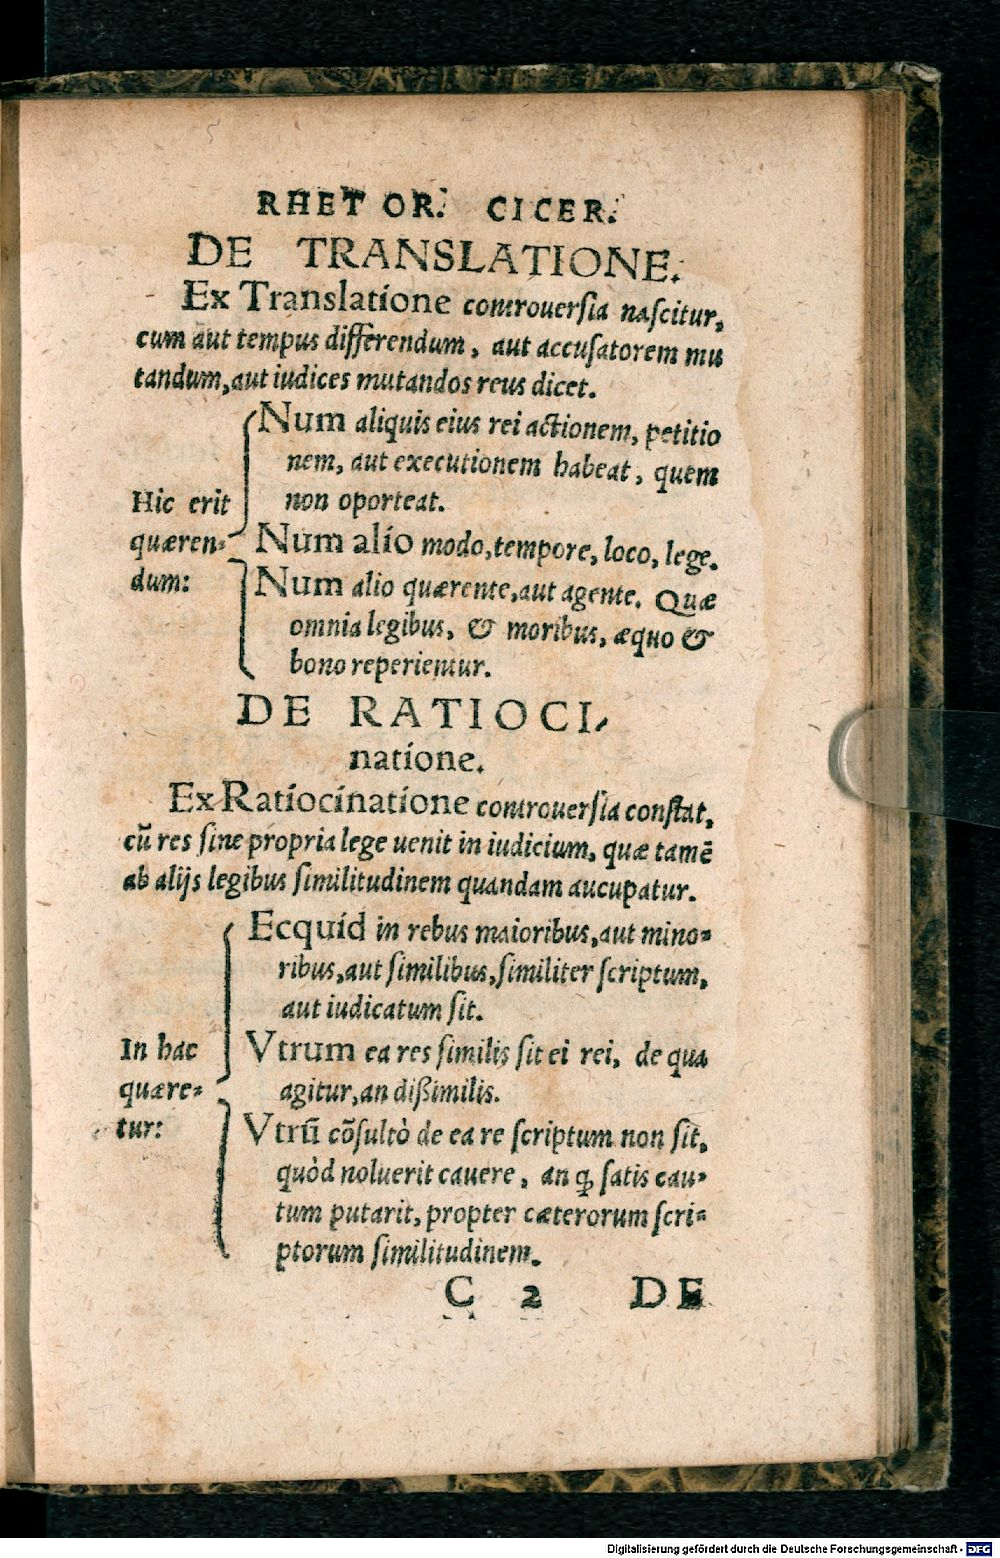 RHETOR. CICER.
DE TRANSLATIONE.
Ex Translatione controuersia nascitur,
cum aut tempus differendum, aut accusatorem mu
tandum, aut iudices mutandos reus dicet.
Num aliquis eius rei actionem, petitio
nem, aut executionem habeat, quem
non oporteat.
Hic erit
quæren-
dum:
Num alio modo, tempore, loco, lege.
Num alio quærente, aut agente. Quæ
omnia legibus, & moribus, æquo &
bono reperientur.
DE RATIOCI-
natione.
Ex Ratiocinatione controuersia constat,
cũ res sine propria lege uenit in iudicium, quæ tamẽ
ab alijs legibus similitudinem quandam aucupatur.
Ecquid in rebus maioribus, aut mino-
ribus, aut similibus, similiter scriptum,
aut iudicatum sit.
In hac
quære-
tur:
Vtrum ea res similis sit ei rei, de qua
agitur, an dißimilis.
Vtrũ cõsultò de ea re scriptum non sit,
quòd noluerit cauere, an ꝗ satis cau-
tum putarit, propter cæterorum scri-
ptorum similitudinem.
C 2 DE
Digitalisierung gefördert durch die Deutsche Forschungsgemeinschaft - DFG